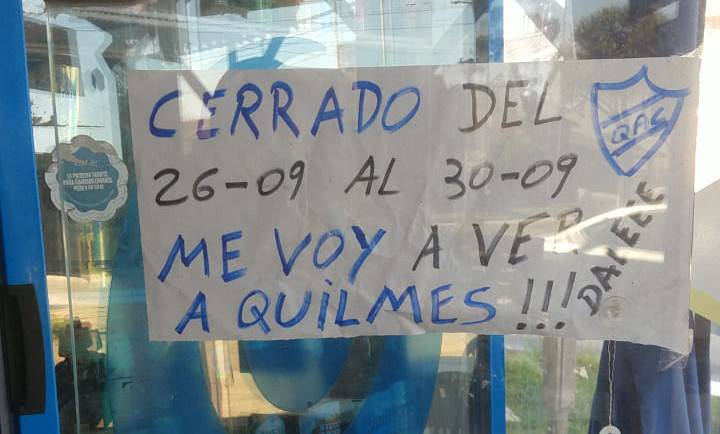 CERRADO DEL
26-09 AL 30-09
ME VOY A VER
A QUILMES !!!
DALEEE
QAC